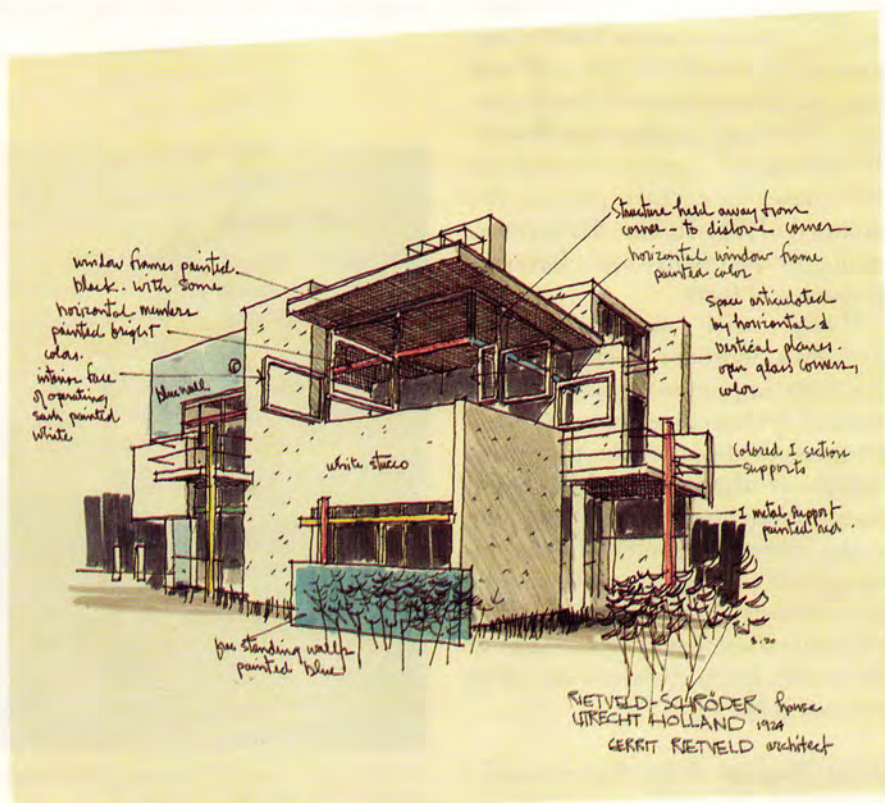 window frames painted
black. with some
horizontal members
painted bright
colors.
interior face
of operating
sash painted
white
blue wall
©
white stucco
free standing walls
painted blue
Structure held away from
corner - to dislove corner
horizontal window frame
painted color
Space articulated
by horizontal &
vertical planes.
open glass corners,
color
Colored I section
supports
I metal support
painted red.
RIETVELD-SCHRÖDER house
UTRECHT HOLLAND 1924
GERRIT RIETVELD architect